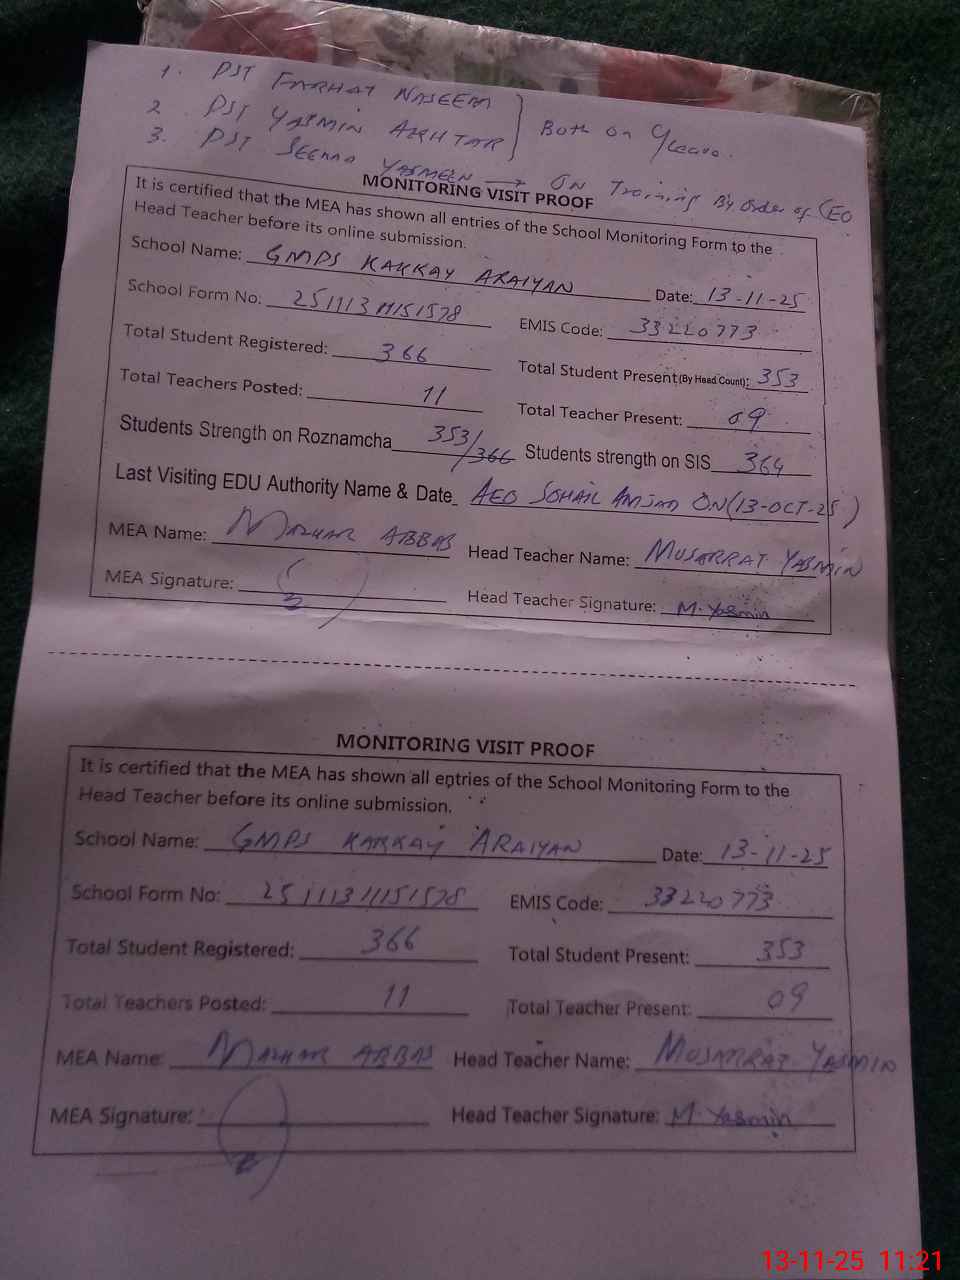 1. PST FARHAT NASEEM
2. PST YASMIN AKHTAR } Both on C/Leave.
3. PST SEEMA YASMEEN → ON Training By order of CEO
MONITORING VISIT PROOF
It is certified that the MEA has shown all entries of the School Monitoring Form to the
Head Teacher before its online submission.
School Name: GMPS KAKKAY ARAIYAN Date: 13-11-25
School Form No: EMIS Code: 33220773
Total Student Registered: 366 Total Student Present(By Head Count): 353
Total Teachers Posted: 11 Total Teacher Present: 09
Students Strength on Roznamcha 353/366 Students strength on SIS 364
Last Visiting EDU Authority Name & Date AEO SOHAIL AMJAD ON (13-OCT-25)
MEA Name: MAZHAR ABBAS Head Teacher Name: MUSARRAT YASMIN
MEA Signature: Head Teacher Signature: M. Yasmin
MONITORING VISIT PROOF
It is certified that the MEA has shown all entries of the School Monitoring Form to the
Head Teacher before its online submission.
School Name: GMPS KAKKAY ARAIYAN Date: 13-11-25
School Form No: EMIS Code: 33220773
Total Student Registered: 366 Total Student Present: 353
Total Teachers Posted: 11 Total Teacher Present: 09
MEA Name: MAZHAR ABBAS Head Teacher Name: MUSARRAT YASMIN
MEA Signature: Head Teacher Signature: M. Yasmin
13-11-25 11:21